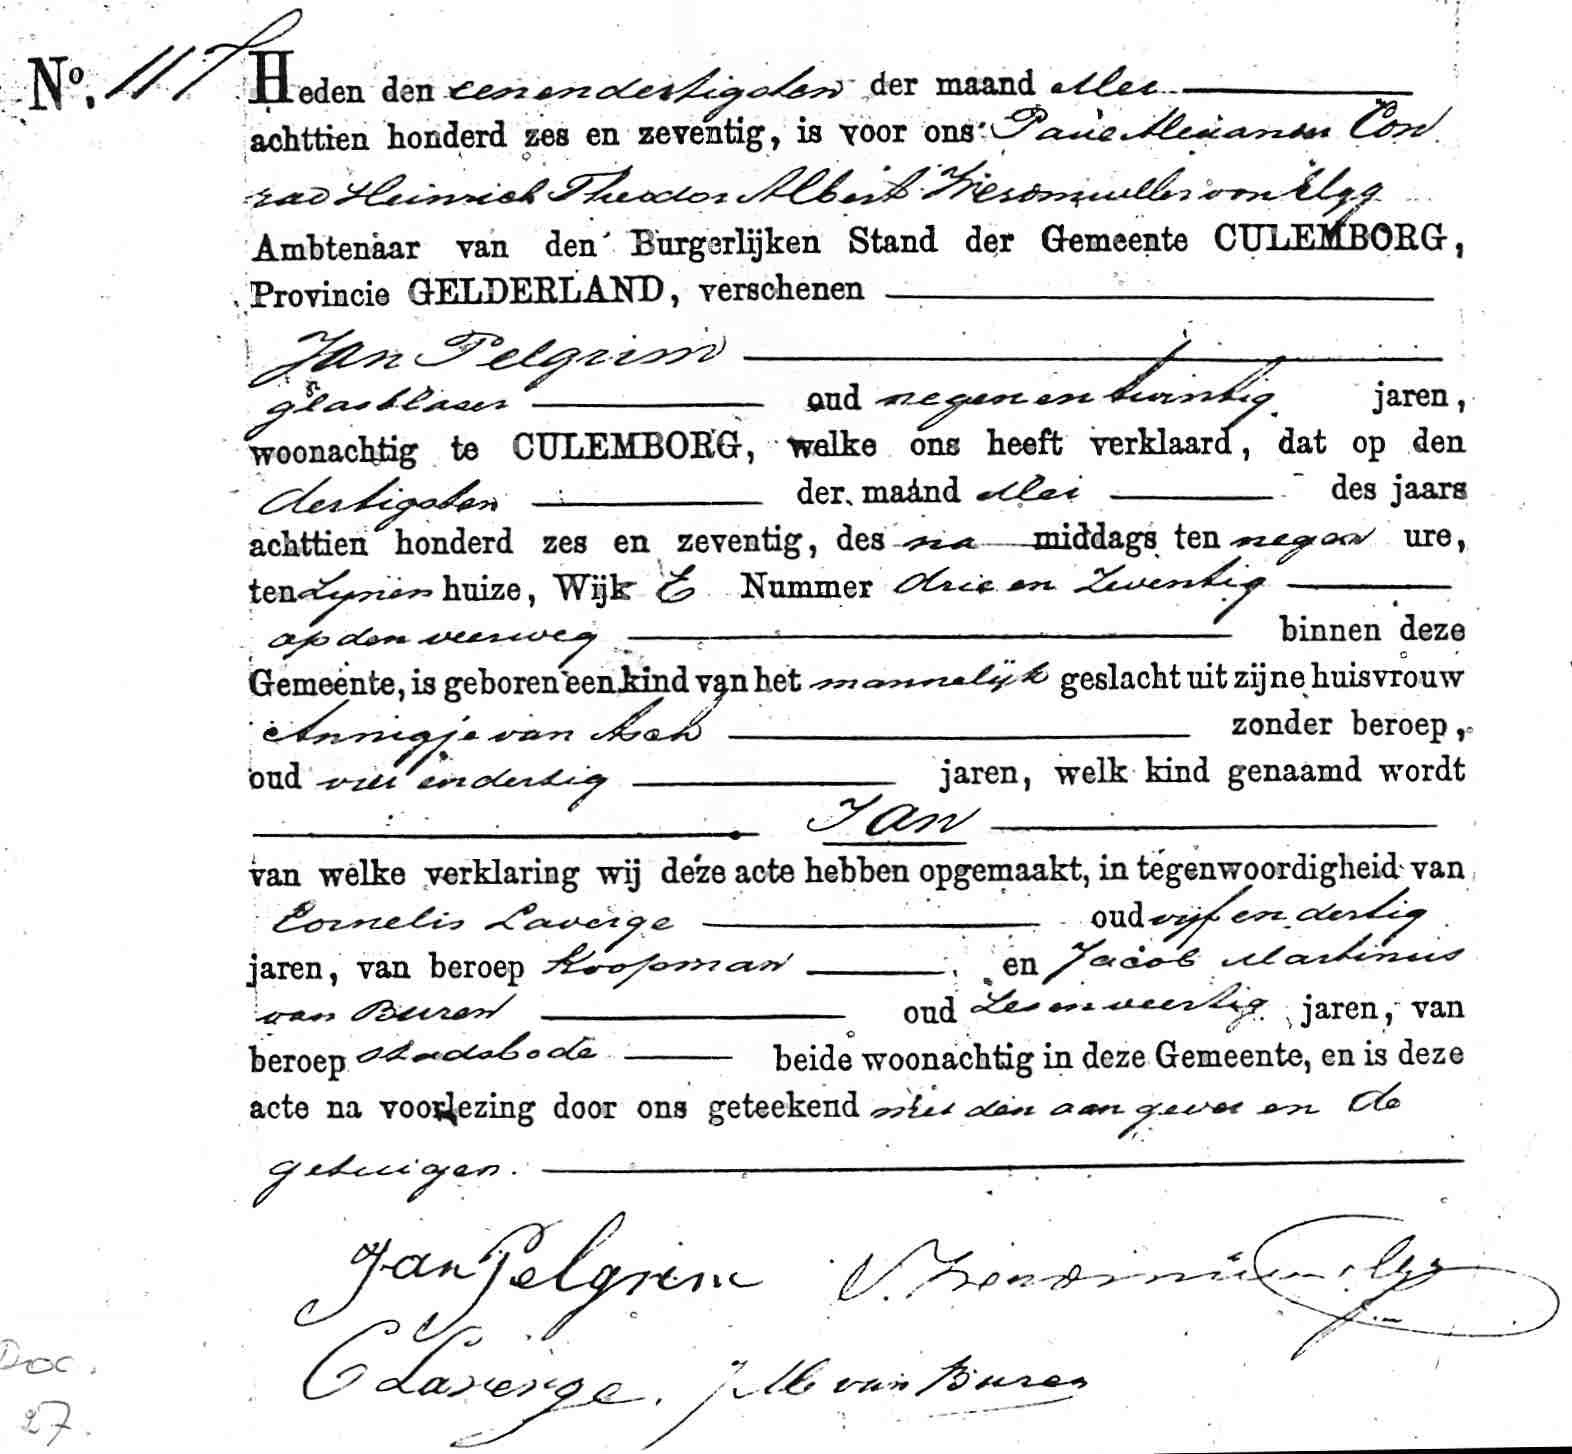 No. 117
Heden den eenendertigsten der maand Mei
achttien honderd zes en zeventig, is voor ons Paul Alexander Con
rad Heinrich Theodor Albert von Elgg
Ambtenaar van den Burgerlijken Stand der Gemeente CULEMBORG,
Provincie GELDERLAND, verschenen
Jan Pelgrim
glasblazer oud negenentwintig jaren,
woonachtig te CULEMBORG, welke ons heeft verklaard, dat op den
dertigsten der maand Mei des jaars
achttien honderd zes en zeventig, des na middags ten negen ure,
ten zijnen huize, Wijk E Nummer drie en zeventig
op den veerweg binnen deze
Gemeente, is geboren een kind van het mannelijk geslacht uit zijne huisvrouw
Annigje van Ash zonder beroep,
oud vier en dertig jaren, welk kind genaamd wordt
Jan
van welke verklaring wij deze acte hebben opgemaakt, in tegenwoordigheid van
Cornelis Laverge oud vijf en dertig
jaren, van beroep Koopman en Jacob Martinus
van Buren oud zes en veertig jaren, van
beroep Stadsbode beide woonachtig in deze Gemeente, en is deze
acte na voorlezing door ons geteekend met den aangever en de
getuigen.
Jan Pelgrim V.
C Laverge. J M van Buren
Doc.
27.